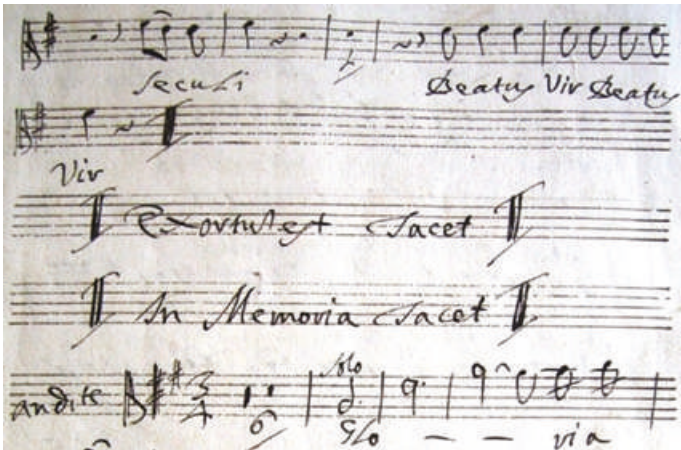 Seculi Beatus Vir Beatus
Vir
Exortus est Tacet
In Memoria Tacet
solo
andite 3/4 6 Glo - - ria